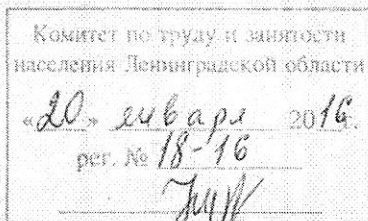 Комитет по труду и занятости
населения Ленинградской области
«20» января 2016 г.
рег. № 18-16